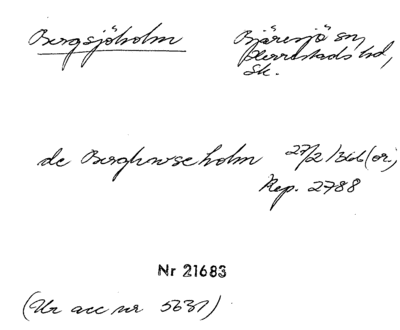 Bergsjöholm
Bjäresjö sn,
Herrestads hd,
Sk.
de Berghuseholm 27/2 1366 (or.)
Rep. 2788
Nr 21683
(Ur acc nr 5631)